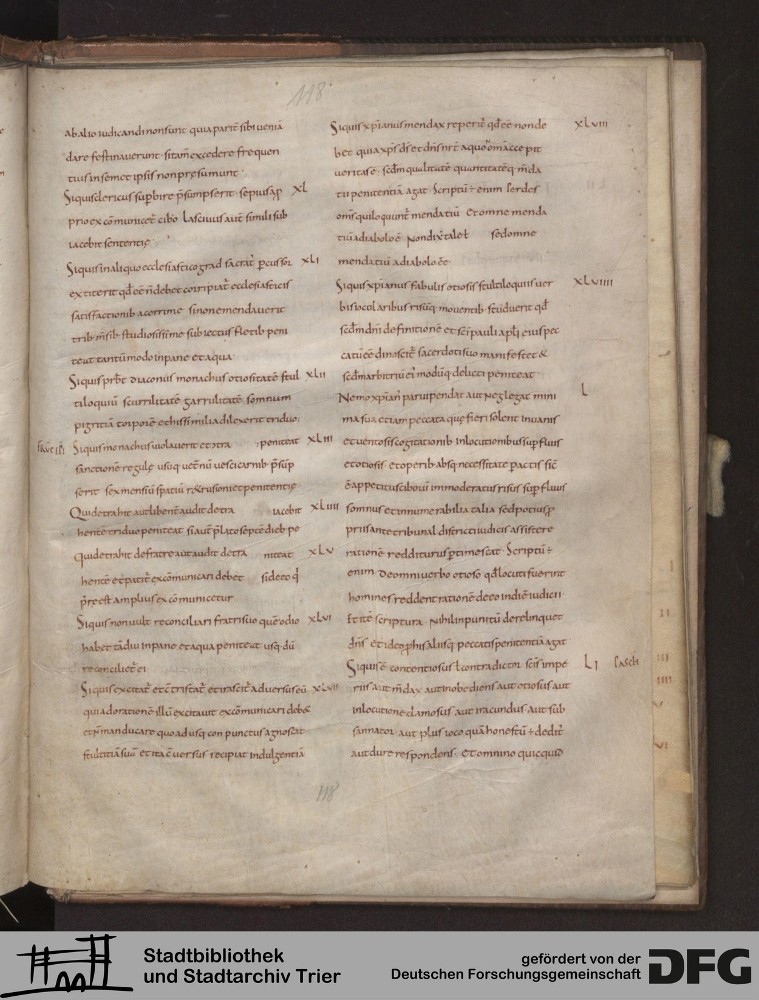 118
ab alio iudicandi non sunt quia parit̄ sibi ueniā
dare festinauerunt · si tam̄ excedere frequen
tius in semet ipsis non presumunt ·
Siquis clericus sup̄bire p̄sumpserit · sepius
XL
prio excōmunicet̄ cibo Lasciuus aut̄ simili sub
iacebit sententię
Siquis in aliquo ecclesiastico grad sacrat̄ p̄cussor
XLI
extiterit qđ eē n̄ debet corripiat̄ ecclesiasticis
satisfactionib acerrime · si non emendauerit
trib m̄sib studiosissime subiectus fletib peni
teat tantūmodo in pane et aqua
Siquis prb̄t diaconus monachus otiositatē stul
XLII
tiloquiū scurrilitatē garrulitatē somnum
pigritiā torporē et his similia dilexerit triduo
peniteat
Siquis monachus uiolauerit
XLIII
sanctionē regulę usuq ueēnū uesci carnib p̄sūp
serit sex mensiū spatiū
penitentię
Qui detrahit aut libent̄ audit detra
iacebit
XLIIII
hentē triduo peniteat si aut̄ p̄lato septē dieb pe
niteat
qui detrahit de fratre aut audit detra
XLV
hentē et patit̄ excōmunicari debet
si de eo q̄
p̄reest amplius excōmunicetur
Siquis non uult reconciliari fratri suo quē odio
XLVI
habet tādiu in pane et aqua peniteat usq dū
reconciliet̄ ei
Siquis excitat̄ et cōtristat̄ et irascit̄ aduersus eū
XLVII
qui ad orationē illū excitauit excōmunicari debet
et n̄ manducare quo adusq conpunctus agnoscat
stultitiā suā et ita cōuersus recipiat indulgentiā
Siquis xp̄ianus mendax reperit̄ qđ eē non de
XLVIII
bet quia xp̄s ds̄ et dn̄s nr̄ē a quo nom̄ accepit
ueritas ē · scđm qualitatē quantitatēq m̄da
tii penitentiā agat · Scriptū ÷ enim perdes
om̄s qui loquunt̄ mendatiū Et omne menda
tiū a diabolo ē Non dixit
sed omne
mendatiū a diabolo eē
Siquis xp̄ianus fabulis otiosis stultiloquiis uer
XLVIIII
bis iocolaribus risūq mouentib studuerit qđ
scđm dn̄i definitionē et sc̄i pauli apl̄i
catū eē dinoscit̄ sacerdoti suo manifestet &
scđm arbitriū ei modūq delicti peniteat
Nemo xp̄ianus paruipendat aut neglegat mini
L
ma sua etiam peccata quę fieri solent in uanis
et uentosis cogitationib in locutionibus sup̄fluis
et otiosis et operib absq necessitate pactis
appetitus ciboru immoderatus risus sup̄fluus
somnus et innumerabilia talia sed potius
priusante tribunal districti iudicis assistere
rationē redditurus p̄timescat · Scriptū ÷
enim De omni uerbo otioso qđ locuti fuerint
homines reddent rationē de eo in diē iudicii
Et itē scriptura Nihil inpunitū derelinquet
dn̄s et ideo p̄ his aliisq peccatis penitentiā agat
Siquis ē contentiosus l contradictor scis impe
LI
pasch
riis aut m̄dax aut inobediens aut otiosus aut
in locutione clamosus aut iracundus aut sub
sannator aut plus ioco quā honestū ÷ dedit̄
aut dure respondens · Et omnino quicquid
118
Stadtbibliothek
und Stadtarchiv Trier
gefördert von der
Deutschen Forschungsgemeinschaft
DFG